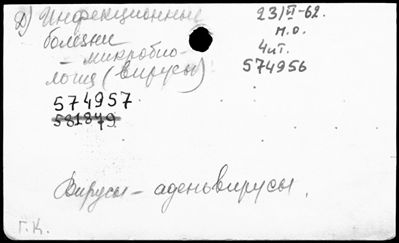 Д) Инфекционные
болезни
– микробио-
логия (вирусы)
23/VI-62.
м.о.
4 ит.
574956
574957
581879
Вирусы – аденовирусы.
Г.К.